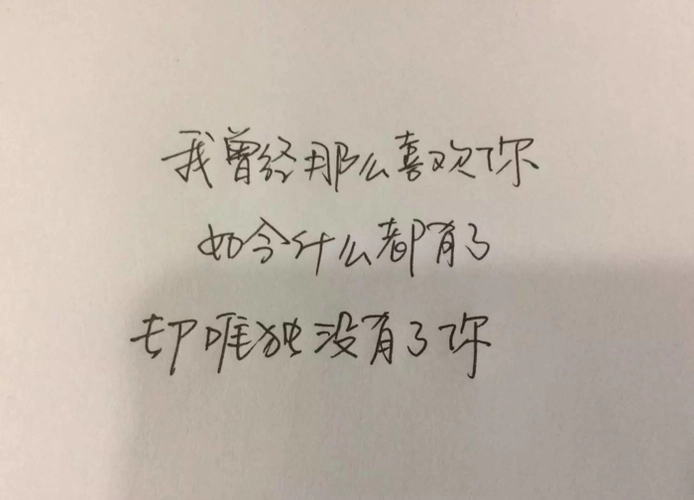 我曾经那么喜欢你
如今什么都有了
却唯独没有了你